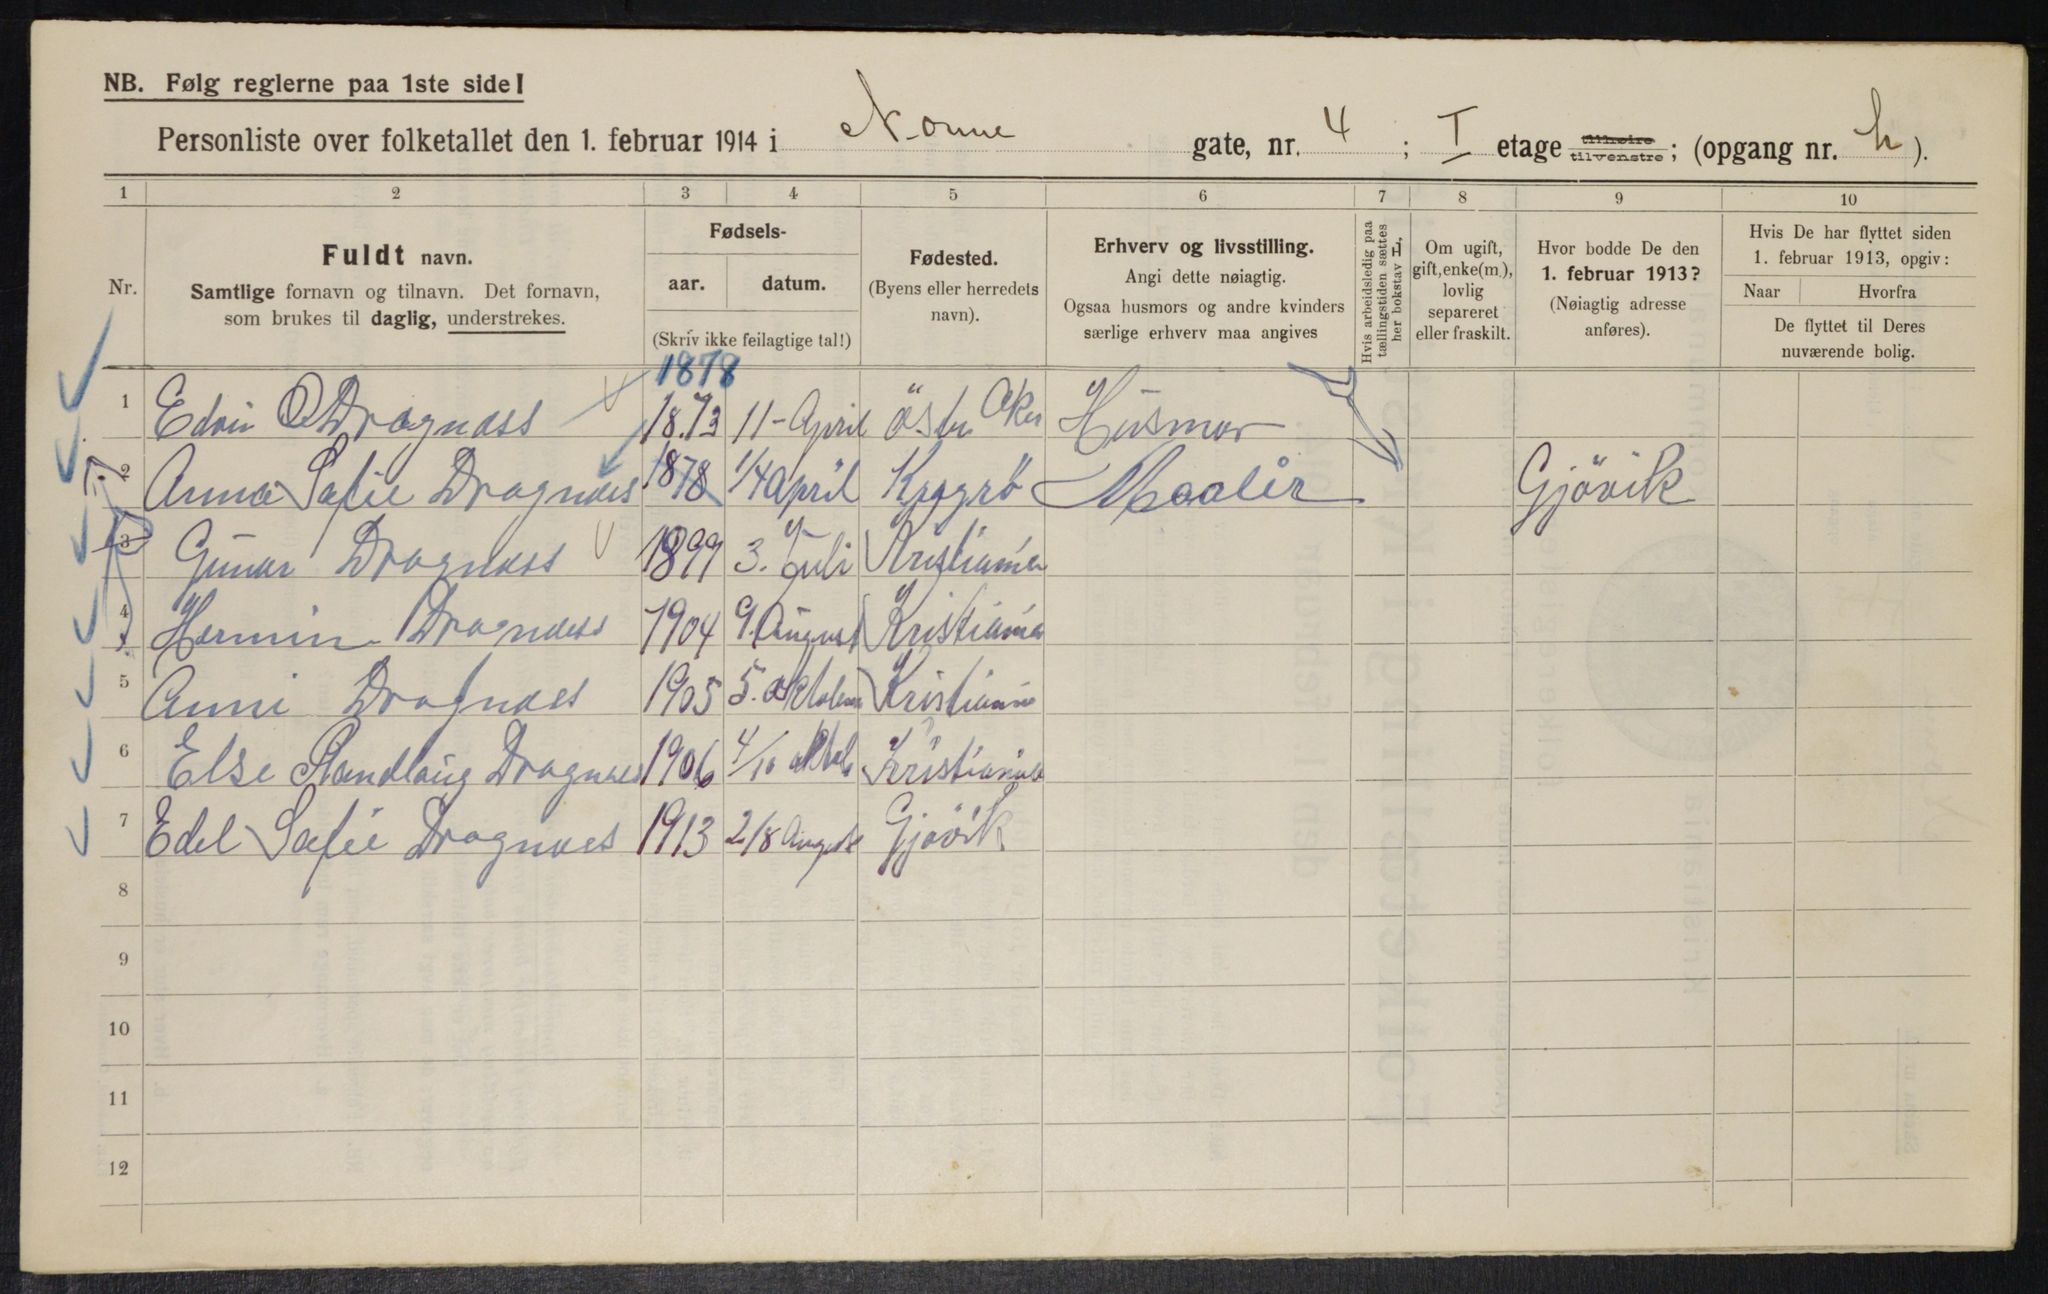 NB. Følg reglerne paa 1ste side!
Personliste over folketallet den 1. februar 1914 i Nonne gate, nr. 4 ; I etage tilhøire tilvenstre; (opgang nr. h ).
1 2 3 4 5 6 7 8 9 10
Nr.
Fuldt navn.
Samtlige fornavn og tilnavn. Det fornavn,
som brukes til daglig, understrekes.
Fødsels-
aar. datum.
(Skriv ikke feilagtige tal!)
Fødested.
(Byens eller herredets
navn).
Erhverv og livsstilling.
Angi dette nøiagtig.
Ogsaa husmors og andre kvinders
særlige erhverv maa angives
Hvis arbeidsledig paa
tællingstiden sættes
her bokstav L.
Om ugift,
gift, enke(m.),
lovlig
separeret
eller fraskilt.
Hvor bodde De den
1. februar 1913?
(Nøiagtig adresse
anføres).
Hvis De har flyttet siden
1. februar 1913, opgiv:
Naar Hvorfra
De flyttet til Deres
nuværende bolig.
1878
1 Edvin O Dragnæss 1873 11-April östre Aker Husmor
2 Anna Sofie Dragnæs 1878 1/4 April Kragrö Maaler Gjövik
3 Gunar Dragnæss 1899 3. Juli Kristiania
4 Hermin Dragnæss 1904 9. August Kristiania
5 Anni Dragnæs 1905 5. oktober Kristiania
6 Else Randlaug Dragnæs 1906 4/10 oktob Kristiania
7 Edel Sofie Dragnæs 1913 2/8 August Gjövik
8
9
10
11
12